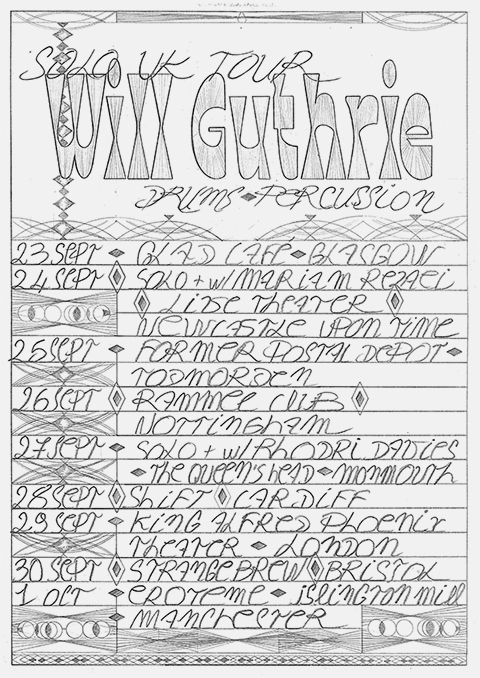 SOLO UK TOUR
Will Guthrie
DRUMS ◆ PERCUSSION
23 SEPT ◆ GLAD CAFE ◆ GLASGOW
24 SEPT SOLO + W/ MARIAM REZAEI
LIDE THEATER
NEWCASTLE UPON TIME
25 SEPT ◆ FORMER POSTAL DEPOT ◆
TODMORDEN
26 SEPT RAMMEL CLUB
NOTTINGHAM
27 SEPT ◆ SOLO + W/ RHODRI DAVIES
◆ THE QUEEN'S HEAD ◆ MONMOUTH
28 SEPT SHIFT CARDIFF
29 SEPT ◆ KING ALFRED PHOENIX
THEATER ◆ LONDON
30 SEPT STRANGE BREW BRISTOL
1 OCT ◆ EROTEME ◆ ISLINGTON MILL
◆ MANCHESTER